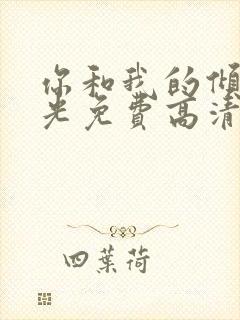 你和我的倾
光免费高清
四葉荷